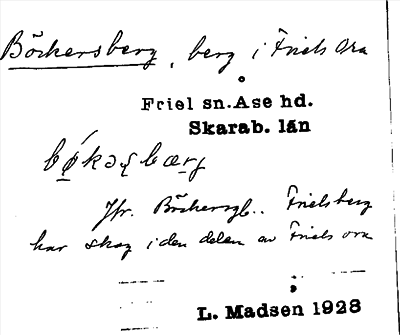 Böckersberg, berg i Friels ora
Friel sn. Åse hd.
Skarab. län
Jfr. Böckersg.. Frielsberg
har skog i den delen av Friels ora
L. Madsen 1928